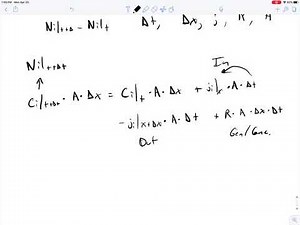 Ni|t+Δt - Ni|t    Δt, Δx, j, R, A
Ni|t+Δt
In
Ci|t+Δt · A · Δx = Ci|t · A · Δx + ji|x · A · Δt
- ji|x+Δx · A · Δt + R · A · Δx · Δt
Out    Gen/Conc.